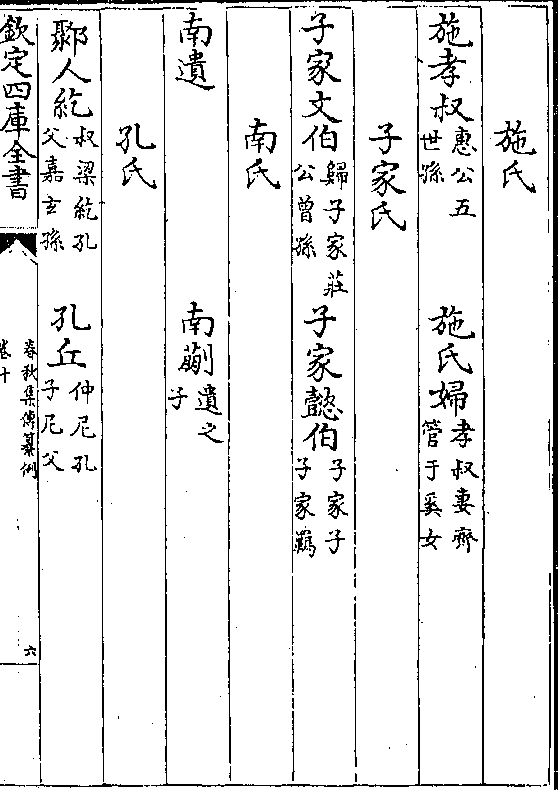 施氏
施孝叔惠公五世孫　施氏婦孝叔妻齊管于奚女
子家氏
子家文伯歸子家莊公曾孫　子家懿伯子家子子家羈
南氏
南遺　南蒯遺之子
孔氏
鄹人紇叔梁紇孔父嘉玄孫　孔丘仲尼孔子尼父
欽定四庫全書
春秋集傳纂例
卷十
六